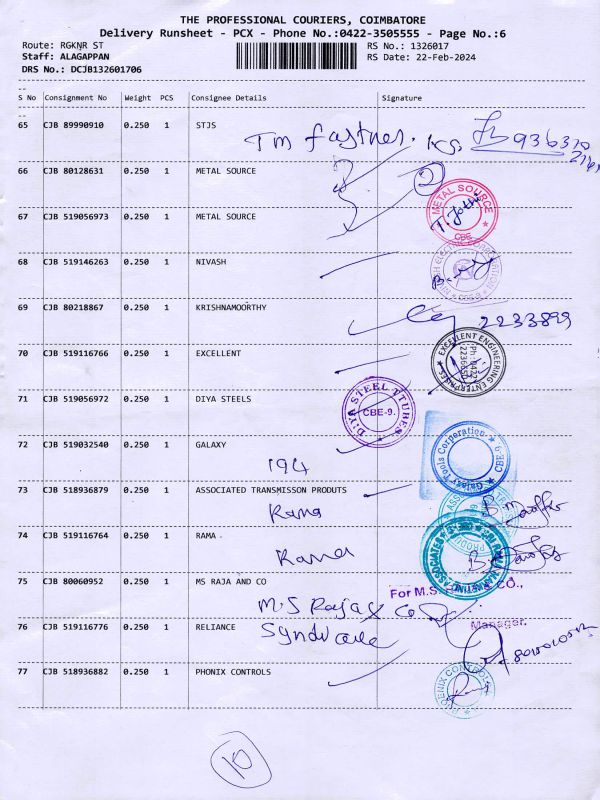 THE PROFESSIONAL COURIERS, COIMBATORE
Delivery Runsheet - PCX - Phone No.:0422-3505555 - Page No.:6
Route: RGKNR ST
RS No.: 1326017
Staff: ALAGAPPAN
RS Date: 22-Feb-2024
DRS No.: DCJB132601706
S No Consignment No Weight PCS Consignee Details Signature
65 CJB 89990910 0.250 1 STJS
Tm fastner.
66 CJB 80128631 0.250 1 METAL SOURCE
2
67 CJB 519056973 0.250 1 METAL SOURCE
METAL SOURCE
CBE
68 CJB 519146263 0.250 1 NIVASH
69 CJB 80218867 0.250 1 KRISHNAMOORTHY
2233899
70 CJB 519116766 0.250 1 EXCELLENT
EXCELLENT ENGINEERING ENTERPRISES
71 CJB 519056972 0.250 1 DIYA STEELS
CBE-9.
72 CJB 519032540 0.250 1 GALAXY
Galaxy Tools Corporation
CBE-9
194
73 CJB 518936879 0.250 1 ASSOCIATED TRANSMISSON PRODUTS
Rama
74 CJB 519116764 0.250 1 RAMA
Rama
75 CJB 80060952 0.250 1 MS RAJA AND CO
For M.S. CO.,
M.S Raja & Co
Manager.
76 CJB 519116776 0.250 1 RELIANCE
Syndicate
77 CJB 518936882 0.250 1 PHONIX CONTROLS
PHOENIX CONTROLS
10